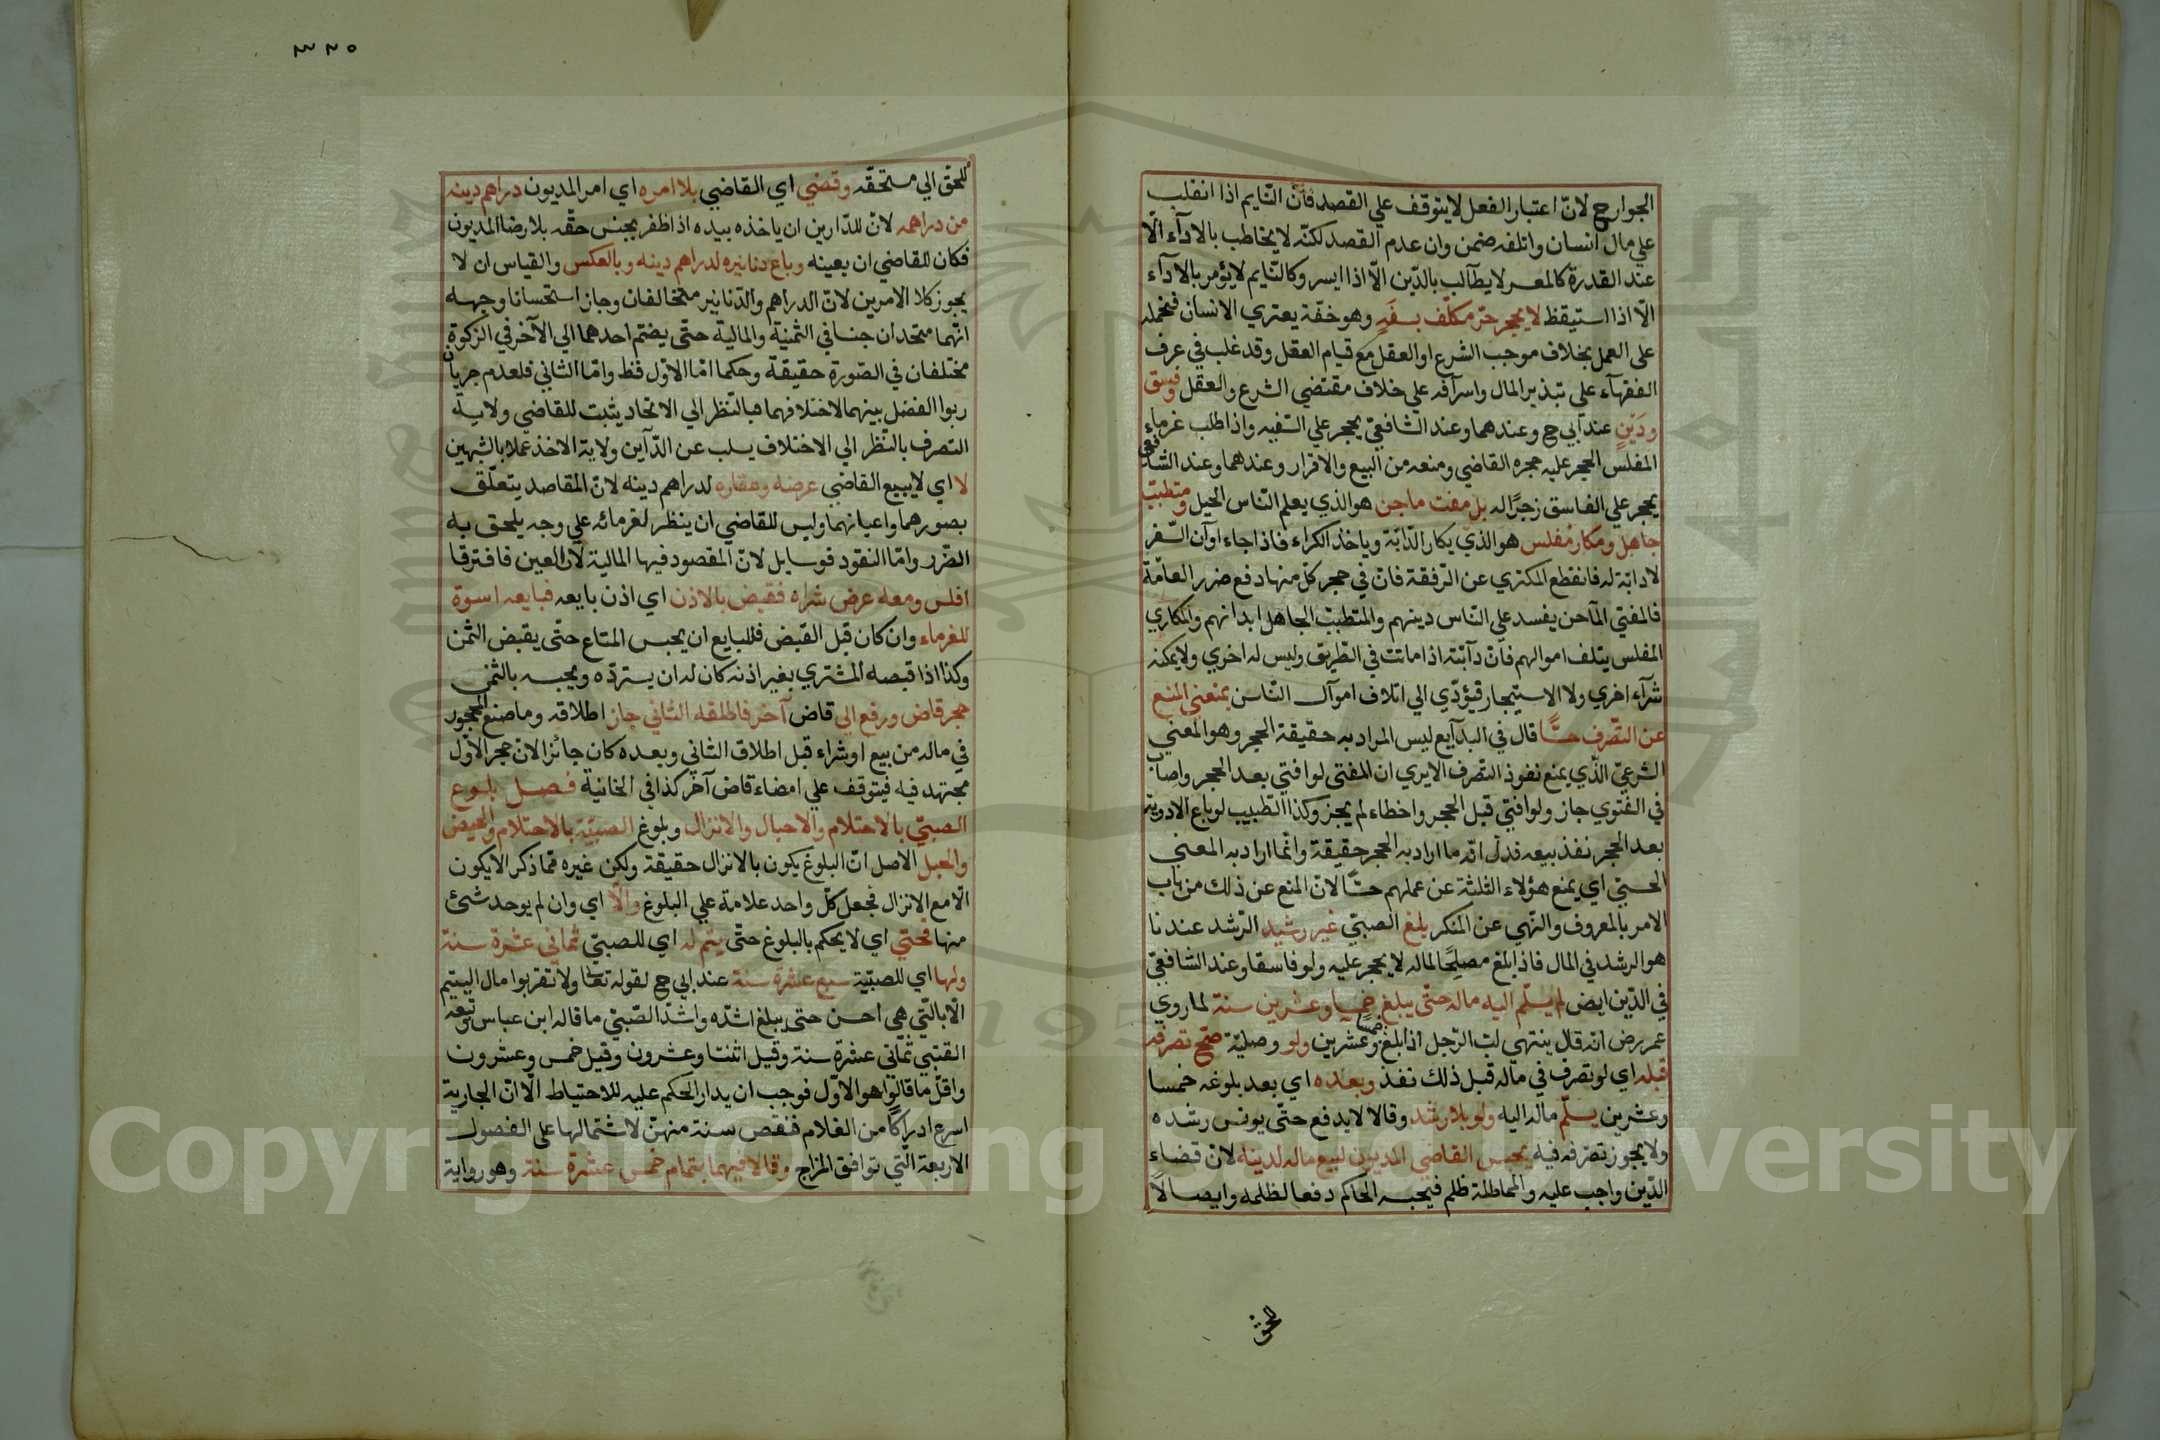 الجوارح لانّ اعتبار الفعل لا يتوقف علي القصد فانّ النّايم اذا انقلب
علي مال انسان واتلفه ضمن وان عدم القصد لكنّه لا يخاطب بالادآء الّا
عند القدرة كالمعسر لا يطالب بالدّين الّا اذا ايسر وكالنّايم لا يؤمر بالادآء
الّا اذا استيقظ لا يحجر حرّ مكلّف بسفهٍ وهو خفّة يعتري الانسان فتحمله
على العمل بخلاف موجب الشرع او العقل مع قيام العقل وقد غلب في عرف
الفقهآء على تبذير المال واسرافه علي خلاف مقتضي الشرع والعقل وفسق
ودَينٍ عند ابي ح وعندهما وعند الشافعيّ يحجر علي السّفيه واذا طلب غرماء
المفلس الحجر عليه حجره القاضي ومنعه من البيع والاقرار وعندهما وعند الشافعي
يحجر علي الفاسق زجرًا له بل مفت ماجن هو الذي يعلم النّاس الحيل ومتطبّب
جاهل ومكار مُفلس هو الذي يكار الدّابّة وياخذ الكراء فاذا جاء اوآن السّفر
لا دابّة له فانقطع المكتري عن الرّفقة فانّ في حجر كلّ منها دفع ضرر العامّة
فالمفتي المآجن يفسد علي النّاس دينهم والمتطبّب الجاهل ابدانهم والمكاري
المفلس يتلف اموالهم فانّ دآبّته اذا ماتت في الطّريق وليس له اخري ولا يمكنه
شرآء اخري ولا الاستيجار فيؤدّي الي اتلاف اموآل النّاس بمعني المنع
عن التصّرف حسًّا قال في البدآيع ليس المراد به حقيقة الحجر وهو المعني
الشرعيّ الّذي يمنع نفوذ التصّرف الا يري ان المفتي لو افتي بعد الحجر واصاب
في الفتوي جاز ولو افتي قبل الحجر واخطاء لم يجز وكذا الطّبيب لو باع الادوية
بعد الحجر نفذ بيعه فدلّ انّه ما اراد به الحجر حقيقة وانّما اراد به المعني
الحسّي اي يمنع هؤلاء الثلثة عن عملهم حسًّا لانّ المنع عن ذلك من باب
الامر بالمعروف والنّهي عن المنكر بلغ الصبيّ غير رشيد الرّشد عندنا
هو الرشد في المال فاذا بلغ مصلحًا لماله لا يحجر عليه ولو فاسقا وعند الشافعيّ
في الدّين ايض لم يسلّم اليه ماله حتّى يبلغ خمسا وعشرين سنة لما روي
عمر رض انّه قال ينتهي لبّ الرّجل اذا بلغ خمسا وعشرين ولو وصليّة صحّ تصرفه
قبله اي لو تصرف في ماله قبل ذلك نفذ وبعده اي بعد بلوغه خمسا
وعشرين يسلّم ماله اليه ولو بلا رشد وقالا لا يدفع حتّى يونس رشده
ولا يجوز تصّرفه فيه يحبس القاضي المديون لبيع ماله لدينه لانّ قضاء
الدّين واجب عليه والمماطلة ظلم فيحبسه الحاكم دفعا لظلمه وايصالًا
للحق
٣٢٥
للحق الي مستحقّه وقضي اي القاضي بلا امره اي امر المديون دراهم دينه
من دراهمه لانّ للدّاين ان ياخذه بيده اذا ظفر بجنس حقّه بلا رضا المديون
فكان للقاضي ان يعينه وباع دنانيره لدراهم دينه وبالعكس والقياس ان لا
يجوز كلا الامرين لانّ الدراهم والدّنانير مختالفان وجاز استحسانا وجهه
انّهما متحدان جنسا في الثمنيّة والمالية حتّى يضتم احدهما الي الآخر في الزكوة
مختلفان في الصّورة حقيقة وحكما امّا الاوّل فظ وامّا الثاني فلعدم جريان
ربوا الفضل بينهما لاختلافهما فبالنّظر الي الاتحاد يثبت للقاضي ولاية
التصرف بالنّظر الي الاختلاف يسلب عن الدّاين ولاية الاخذ عملا بالشبهين
لا اي لا يبيع القاضي عرضه وعقاره لدراهم دينه لانّ المقاصد يتعلّق
بصورهما واعيانهما وليس للقاضي ان ينظر لغرمائه علي وجه يلحق به
الضّرر وامّا النقود فوسايل لانّ المقصود فيها المالية لا العين فافترقا
افلس ومعه عرض شراه فقبض بالاذن اي اذن بايعه فبايعه اسوة
للغرماء وان كان قبل القبض فللبايع ان يحبس المتاع حتّى يقبض الثمن
وكذا اذا قبضه المشتري بغير اذنه كان له ان يستردّه ويحبسه بالثمن
حجر قاض ورفع الي قاض آخر فاطلقه الثاني جاز اطلاقه وما صنع المحجور
في ماله من بيع او شراء قبل اطلاق الثاني وبعده كان جائزا لانّ حجر الاوّل
مجتهد فيه فيتوقف علي امضاء قاض آخر كذا في الخانية فصل بلوغ
الصبيّ بالاحتلام والاحبال والانزال وبلوغ الصبيّة بالاحتلام والحيض
والحبل الاصل انّ البلوغ يكون بالانزال حقيقة ولكن غيره ممّا ذكر لا يكون
الّا مع الانزال فجعل كلّ واحد علامة علي البلوغ والّا اي وان لم يوجد شئ
منها فحتّي اي لا يحكم بالبلوغ حتّى يتم له اي للصبيّ ثماني عشرة سنة
ولها اي للصبيّة سبع عشرة سنة عند ابي ح لقوله تعا ولا تقربوا مال اليتيم
الّا بالتّي هي احسن حتى يبلغ اشدّه واشدّ الصّبيّ ما قاله ابن عباس وتبعه
القتبي ثماني عشرة سنة وقيل اثنتا وعشرون وقيل خمس وعشرون
واقلّ ما قالوا هو الاوّل فوجب ان يدار الحكم عليه للاحتياط الّا انّ الجارية
اسرع ادراكًا من الغلام فنقص سنة منهنّ لاشتمالها على الفصول
الاربعة الّتي توافق المزاج وقالا فيهما بتمام خمس عشرة سنة وهو رواية
Copyright © King Saud University
1957